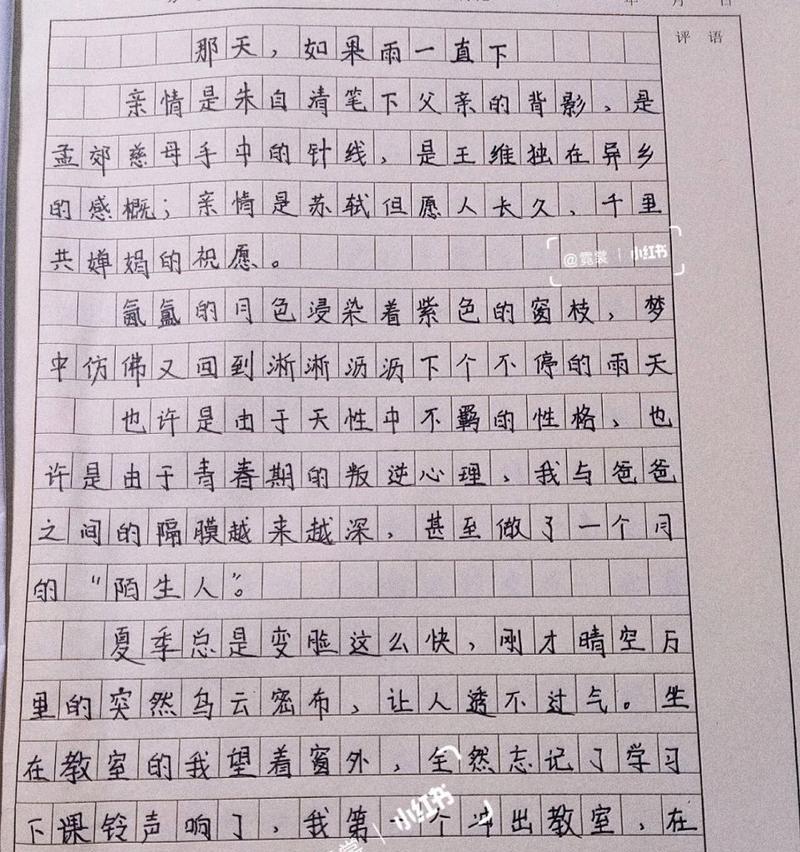 年 月 日
评 语
那天，如果雨一直下
亲情是朱自清笔下父亲的背影、是
孟郊慈母手中的针线，是王维独在异乡
的感概；亲情是苏轼但愿人长久、千里
共婵娟的祝愿。
@霓裳 | 小红书
氤氲的月色浸染着紫色的窗枝，梦
中仿佛又回到淅淅沥沥下个不停的雨天
也许是由于天性中不羁的性格、也
许是由于青春期的叛逆心理，我与爸爸
之间的隔膜越来越深，甚至做了一个月
的“陌生人”。
夏季总是变脸这么快，刚才晴空万
里的突然乌云密布，让人透不过气。坐
在教室的我望着窗外，全然忘记了学习
下课铃声响了，我第一个冲出教室，在
裳 | 小红书